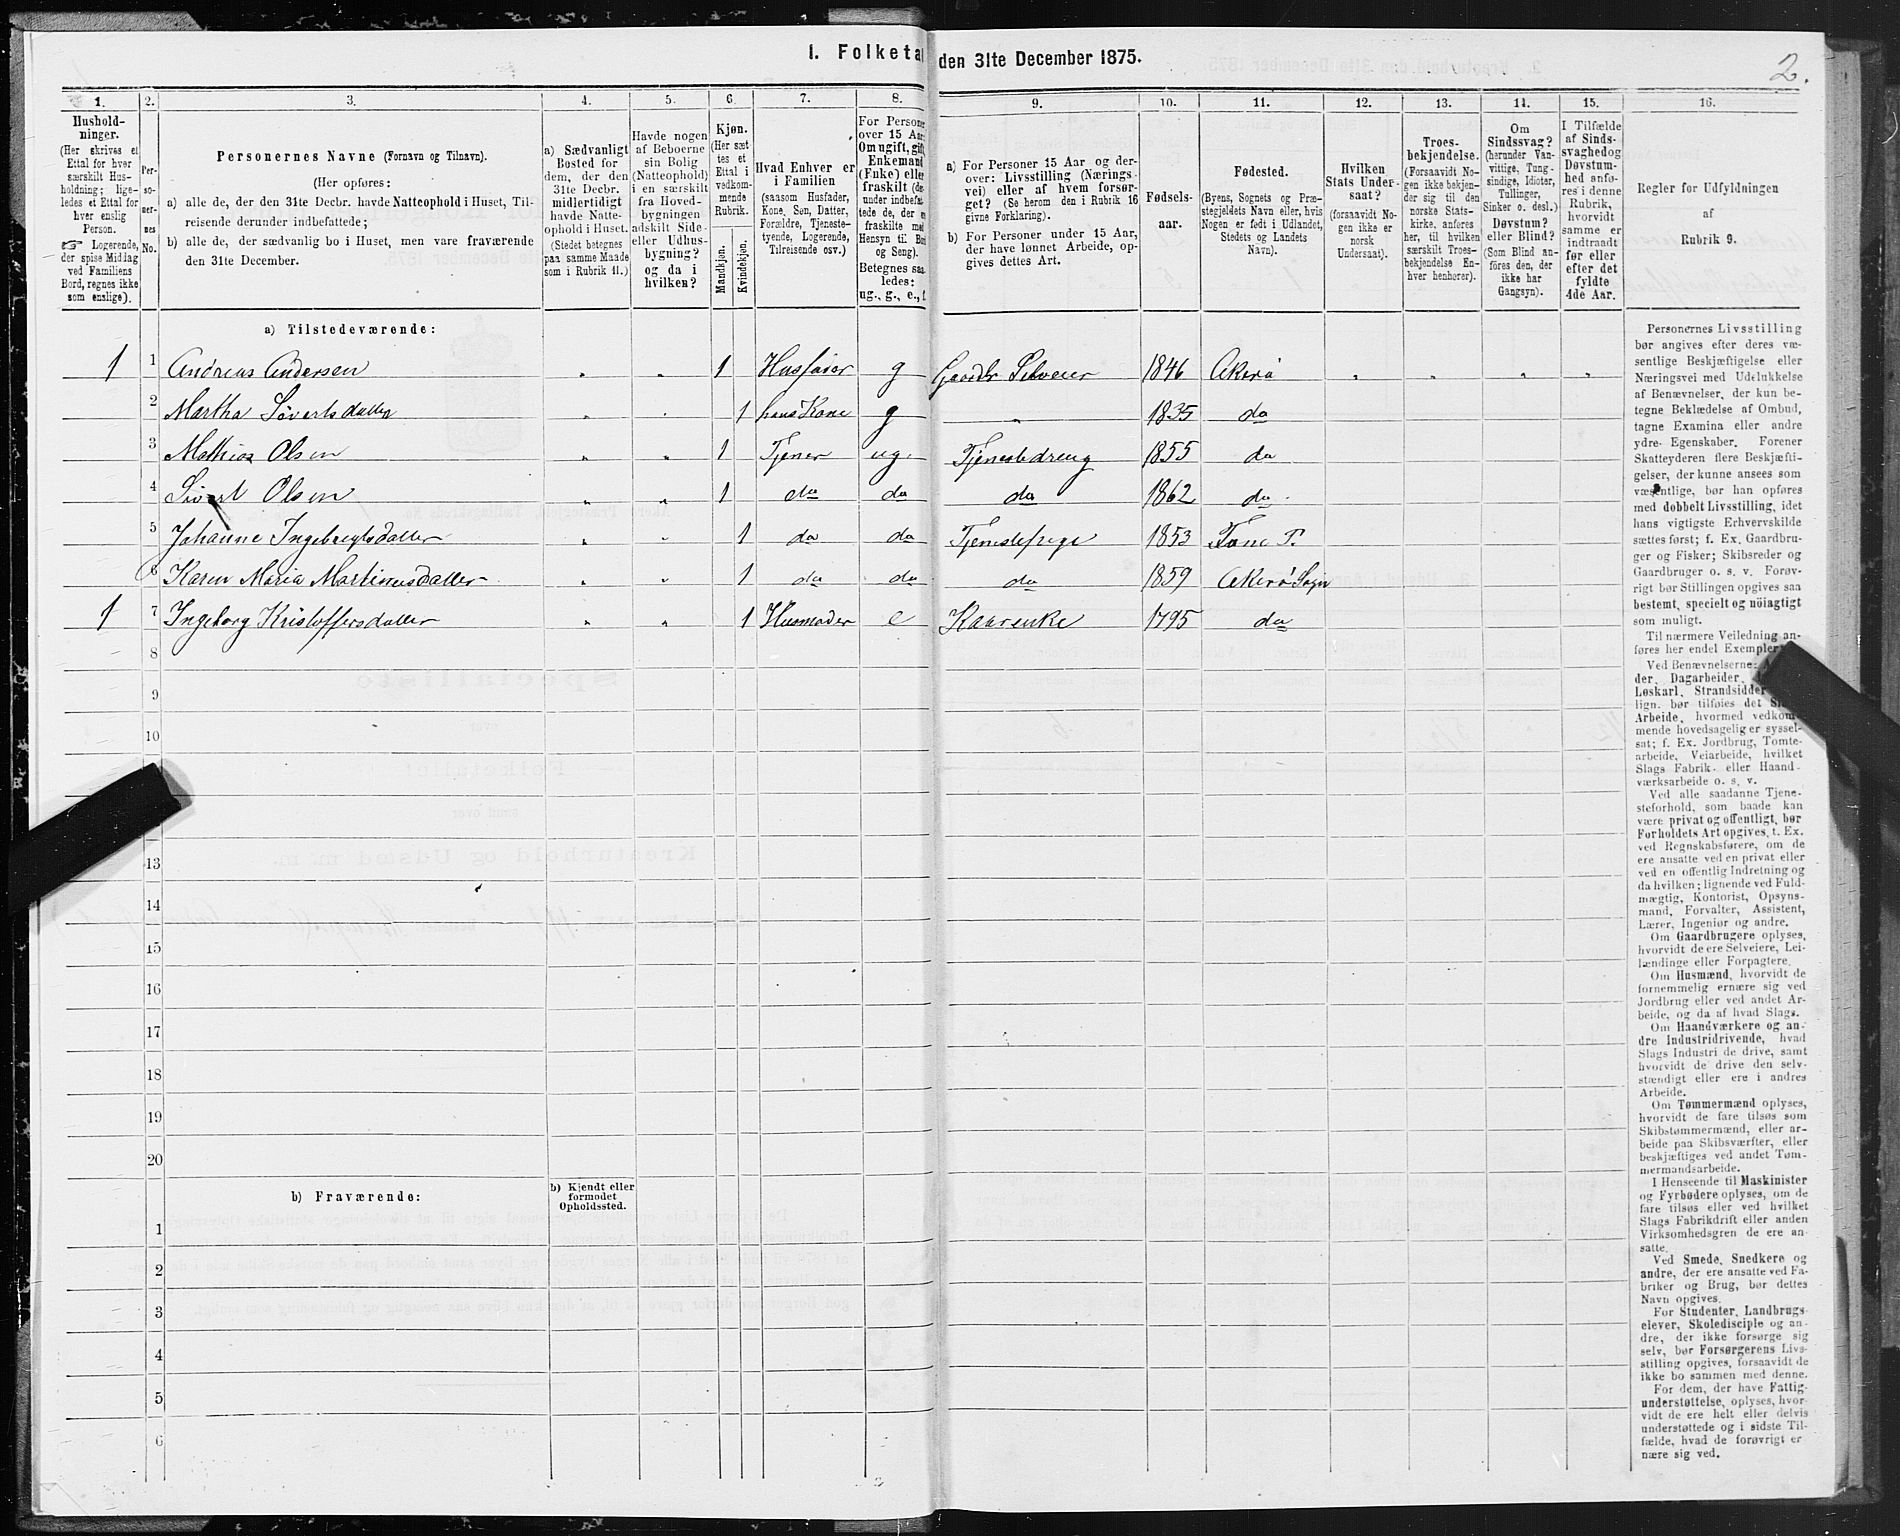 1. Folketal den 31te December 1875.
2.
1. 2. 3. 4. 5. 6. 7. 8. 9. 10. 11. 12. 13. 14. 15. 16.
Hushold-
ninger.
(Her skrives et
Ettal for hver
særskilt Hus-
holdning; lige-
ledes et Ettal for
hver enslig
Person.
☞ Logerende,
der spise Middag
ved Familiens
Bord, regnes ikke
som enslige).
Per-
so-
ner-
nes
No.
Personernes Navne (Fornavn og Tilnavn).
(Her opføres:
a) alle de, der den 31te Decbr. havde Natteophold i Huset, Til-
reisende derunder indbefattede;
b) alle de, der sædvanlig bo i Huset, men vare fraværende
den 31te December.
a) Sædvanligt
Bosted for
dem, der den
31te Decbr.
midlertidigt
havde Natte-
ophold i Huset.
(Stedet betegnes
paa samme Maade
som i Rubrik 11.)
Havde nogen
af Beboerne
sin Bolig
(Natteophold)
i en særskilt
fra Hoved-
bygningen
adskilt Side-
eller Udhus-
bygning?
og da i
hvilken?
Kjøn.
(Her sæt-
tes et
Ettal i
vedkom-
mende
Rubrik.
Mandkjøn.
Kvindekjøn.
Hvad Enhver er
i Familien
(saasom Husfader,
Kone, Søn, Datter,
Forældre, Tjeneste-
tyende, Logerende,
Tilreisende osv.)
For Persone
over 15 Aar
Om ugift, gift
Enkemand
(Enke) elle
fraskilt (de
under indbefat
tede de, der e
fraskilte me
Hensyn til Bo
og Seng).
Betegnes saa
ledes:
ug., g., e., f.
a) For Personer 15 Aar og der-
over: Livsstilling (Nærings-
vei) eller af hvem forsør-
get? (Se herom den i Rubrik 16
givne Forklaring).
b) For Personer under 15 Aar,
der have lønnet Arbeide, op-
gives dettes Art.
Fødsels-
aar.
Fødested.
(Byens, Sognets og Præ-
stegjeldets Navn eller, hvis
Nogen er født i Udlandet,
Stedets og Landets
Navn).
Hvilken
Stats Under-
saat?
(forsaavidt No-
gen ikke er
norsk
Undersaat).
Troes-
bekjendelse.
(Forsaavidt No-
gen ikke bekjen-
der sig til den
norske Stats-
kirke, anføres
her, til hvilken
særskilt Troes-
bekjendelse En-
hver henhører).
Om
Sindssvag?
(herunder Van-
vittige, Tung-
sindige, Idioter,
Tullinger,
Sinker o. desl.)
Døvstum?
eller Blind?
(Som Blind an-
føres den, der
ikke har
Gangsyn).
I Tilfælde
af Sinds-
svaghed og
Døvstum-
hed anfø-
res i denne
Rubrik,
hvorvidt
samme er
indtraadt
før eller
efter det
fyldte
4de Aar.
Regler for Udfyldningen
af
Rubrik 9.
a) Tilstedeværende:
1 1 Andreas Andersen " " 1 Husfader g Gaardbr Selveier 1846 Akerø " " " "
2 Martha Sivertsdatter " " 1 hans Kone g " 1835 do
3 Mathias Olsen " " 1 Tjener ug. Tjenestedreng 1855 do
4 Sivert Olsen " " 1 do do do 1862 do
5 Johanne Ingebregtsdatter " " 1 do do Tjenestepige 1853
6 Karen Maria Martinusdatter " " 1 do do do 1859 Akerø Sogn
1 7 Ingeborg Kristoffersdatter " " 1 Husmoder e Kaarenke 1795 do
8
9
10
13
14
15
16
17
18
19
20
b) Fraværende:
b) Kjendt eller
formodet
Opholdssted.
1
2
3
4
5
6
Personernes Livsstilling
bør angives efter deres væ-
sentlige Beskjæftigelse eller
Næringsvei med Udelukkelse
af Benævnelser, der kun be-
tegne Beklædelse af Ombud,
tagne Examina eller andre
ydre Egenskaber. Forener
Skatteyderen flere Beskjæfti-
gelser, der kunne ansees som
væsentlige, bør han opføres
med dobbelt Livsstilling, idet
hans vigtigste Erhvervskilde
sættes først; f. Ex. Gaardbru-
ger og Fisker; Skibsreder og
Gaardbruger o. s. v. Forøv-
rigt bør Stillingen opgives saa
bestemt, specielt og nöiagtigt
som muligt.
Til nærmere Veiledning an-
føres her endel Exempler
Ved Benævnelserne:
der, Dagarbeider,
Løskarl, Strandsidder
lign. bør tilføies det Sl
Arbeide, hvormed vedkom-
mende hovedsagelig er syssel-
sat; f. Ex. Jordbrug, Tomte-
arbeide, Veiarbeide, hvilket
Slags Fabrik- eller Haand-
værksarbeide o. s. v.
Ved alle saadanne Tjene-
steforhold, som baade kan
være privat og offentligt, bør
Forholdets Art opgives, t. Ex.
ved Regnskabsførere, om de
ere ansatte ved en privat eller
ved en offentlig Indretning og
da hvilken; lignende ved Fuld-
mægtig, Kontorist, Opsyns-
mand, Forvalter, Assistent,
Lærer, Ingeniør og andre.
Om Gaardbrugere oplyses,
hvorvidt de ere Selveiere, Lei-
lændinge eller Forpagtere.
Om Husmænd, hvorvidt de
fornemmelig ernære sig ved
Jordbrug eller ved andet Ar-
beide, og da af hvad Slags.
Om Haandværkere og an-
dre Industridrivende, hvad
Slags Industri de drive, samt
hvorvidt de drive den selv-
stændigt eller ere i andres
Arbeide.
Om Tømmermænd oplyses,
hvorvidt de fare tilsøs som
Skibstømmermænd, eller ar-
beide paa Skibsværfter, eller
beskjæftiges ved andet Tøm-
mermandsarbeide.
I Henseende til Maskinister
og Fyrbødere oplyses, om de
fare tilsøs eller ved hvilket
Slags Fabrikdrift eller anden
Virksomhedsgren de ere an-
satte.
Ved Smede, Snedkere og
andre, der ere ansatte ved Fa-
briker og Brug, bør dettes
Navn opgives.
For Studenter, Landbrugs-
elever, Skoledisciple og an-
dre, der ikke forsørge sig
selv, bør Forsørgerens Livs-
stilling opgives, forsaavidt de
ikke bo sammen med denne.
For dem, der have Fattig-
understøttelse, oplyses, hvor-
vidt de ere helt eller delvis
understøttede og i sidste Til-
fælde, hvad de forøvrigt er
nære sig ved.